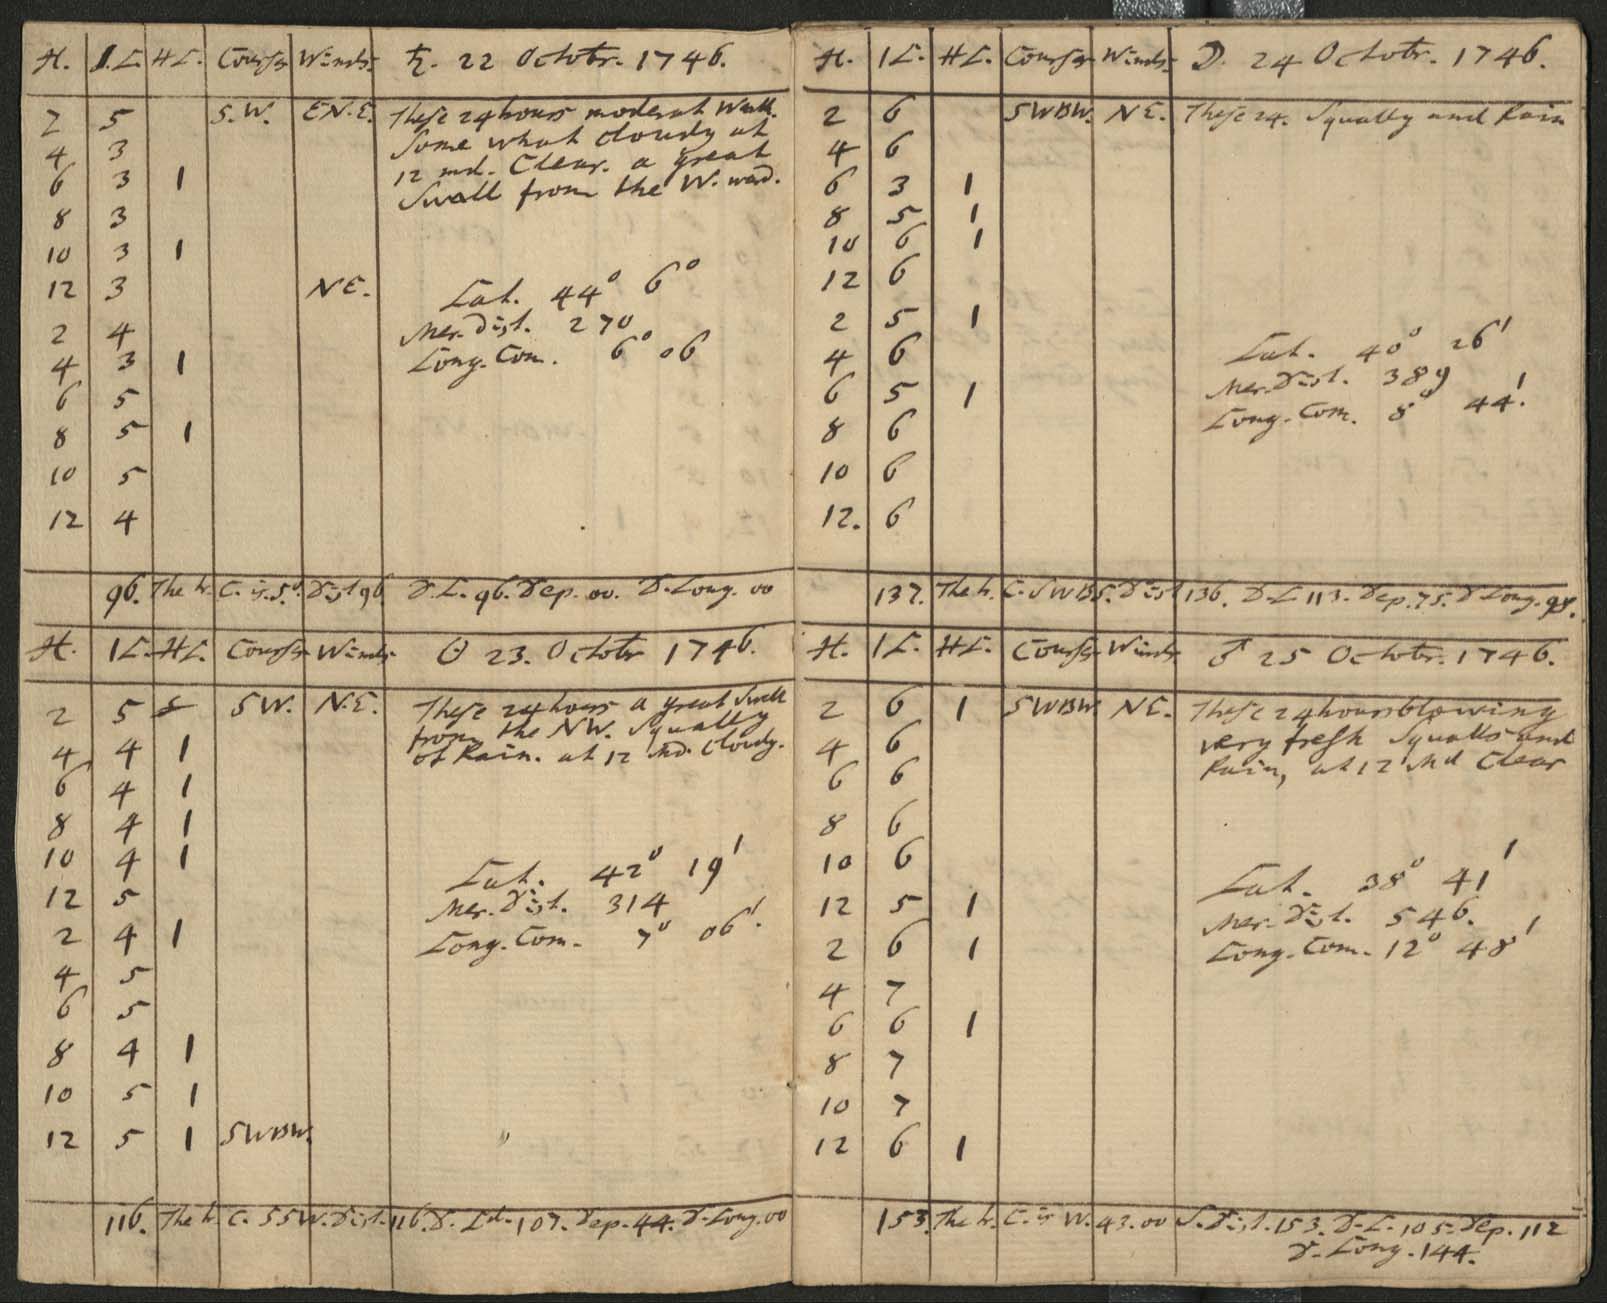 H. 1.L. H L. Courses Winds. ♄. 22 Octobr. 1746.
2 5 S.W. EN.E. These 24 hours moderat Weath.
4 3 Some what cloudy at
6 3 1 12 md. Clear. a great
8 3 Swall from the W. ward.
10 3 1
12 3 NE. Lat. 44° 6°
2 4 Mer. Dist. 270
4 3 1 Long. Com. 6° 06
6 5
8 5 1
10 5
12 4
96. The h. C. is S°. Dist 96. D. L. 96. Dep. 00. D. Long. 00
H. 1L. HL. Courses Winds ☉ 23. Octobr 1746.
2 5 SW. N.E. These 24 hours a great Swell
4 4 1 from the NW. Squally
6 4 1 of Rain. at 12 Md. Cloudy.
8 4 1
10 4 1 Lat. 42° 19'
12 5 Mer. Dist. 314
2 4 1 Long. Com. 7° 06'.
4 5
6 5
8 4 1
10 5 1
12 5 1 SWBW.
116. The h. C. SSW. Dist. 116. D. Lt. 107. Dep. 44. D. Long. 00
H. 1L. HL. Courses Winds. ☽. 24 Octobr. 1746.
2 6 SWBW. NE. These 24. Squally and Rain
4 6
6 3 1
8 5 1
10 6 1
12 6
2 5 1
4 6 Lat. 40° 26'
6 5 1 Mer. Dist. 389
8 6 Long. Com. 8° 44'.
10 6
12. 6
137. The h. C. SWBS. Dist 136. D. L 113. Dep. 75. D Long. 98.
H. 1L. HL. Courses Winds ♂ 25 Octobr. 1746.
2 6 1 SWBW. NE. These 24 hours blowing
4 6 very fresh Squalls and
6 6 Rain, at 12 Md Clear
8 6
10 6 Lat. 38° 41'
12 5 1 Mer. Dist. 546.
2 6 1 Long. Com. 12° 48'
4 7
6 6 1
8 7
10 7
12 6 1
153. The h. C. is W. 43.00 S. Dist. 153. D. L. 105. Dep. 112
D. Long. 144.